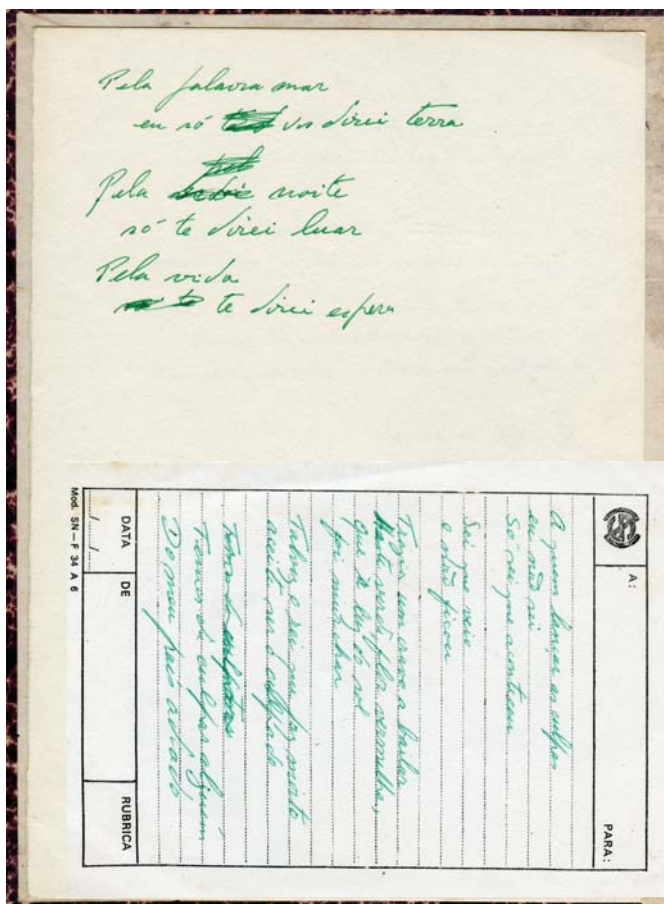 Pela palavra mar
eu só vos direi terra
Pela noite
só te direi luar
Pela vida
te direi espera
A: PARA:
A quem lançar as culpas
eu não sei
Só sei que aconteceu
Sei que veio
e não ficou
Trazia um cravo a bailar
Haste verde, flor vermelha,
que à luz do sol
foi murchar
Talvez
aceite ser o culpado
Temos de culpar alguém
Do meu país adiado
DATA DE RUBRICA
.../.../...
Mod. SN — F 34 A 6